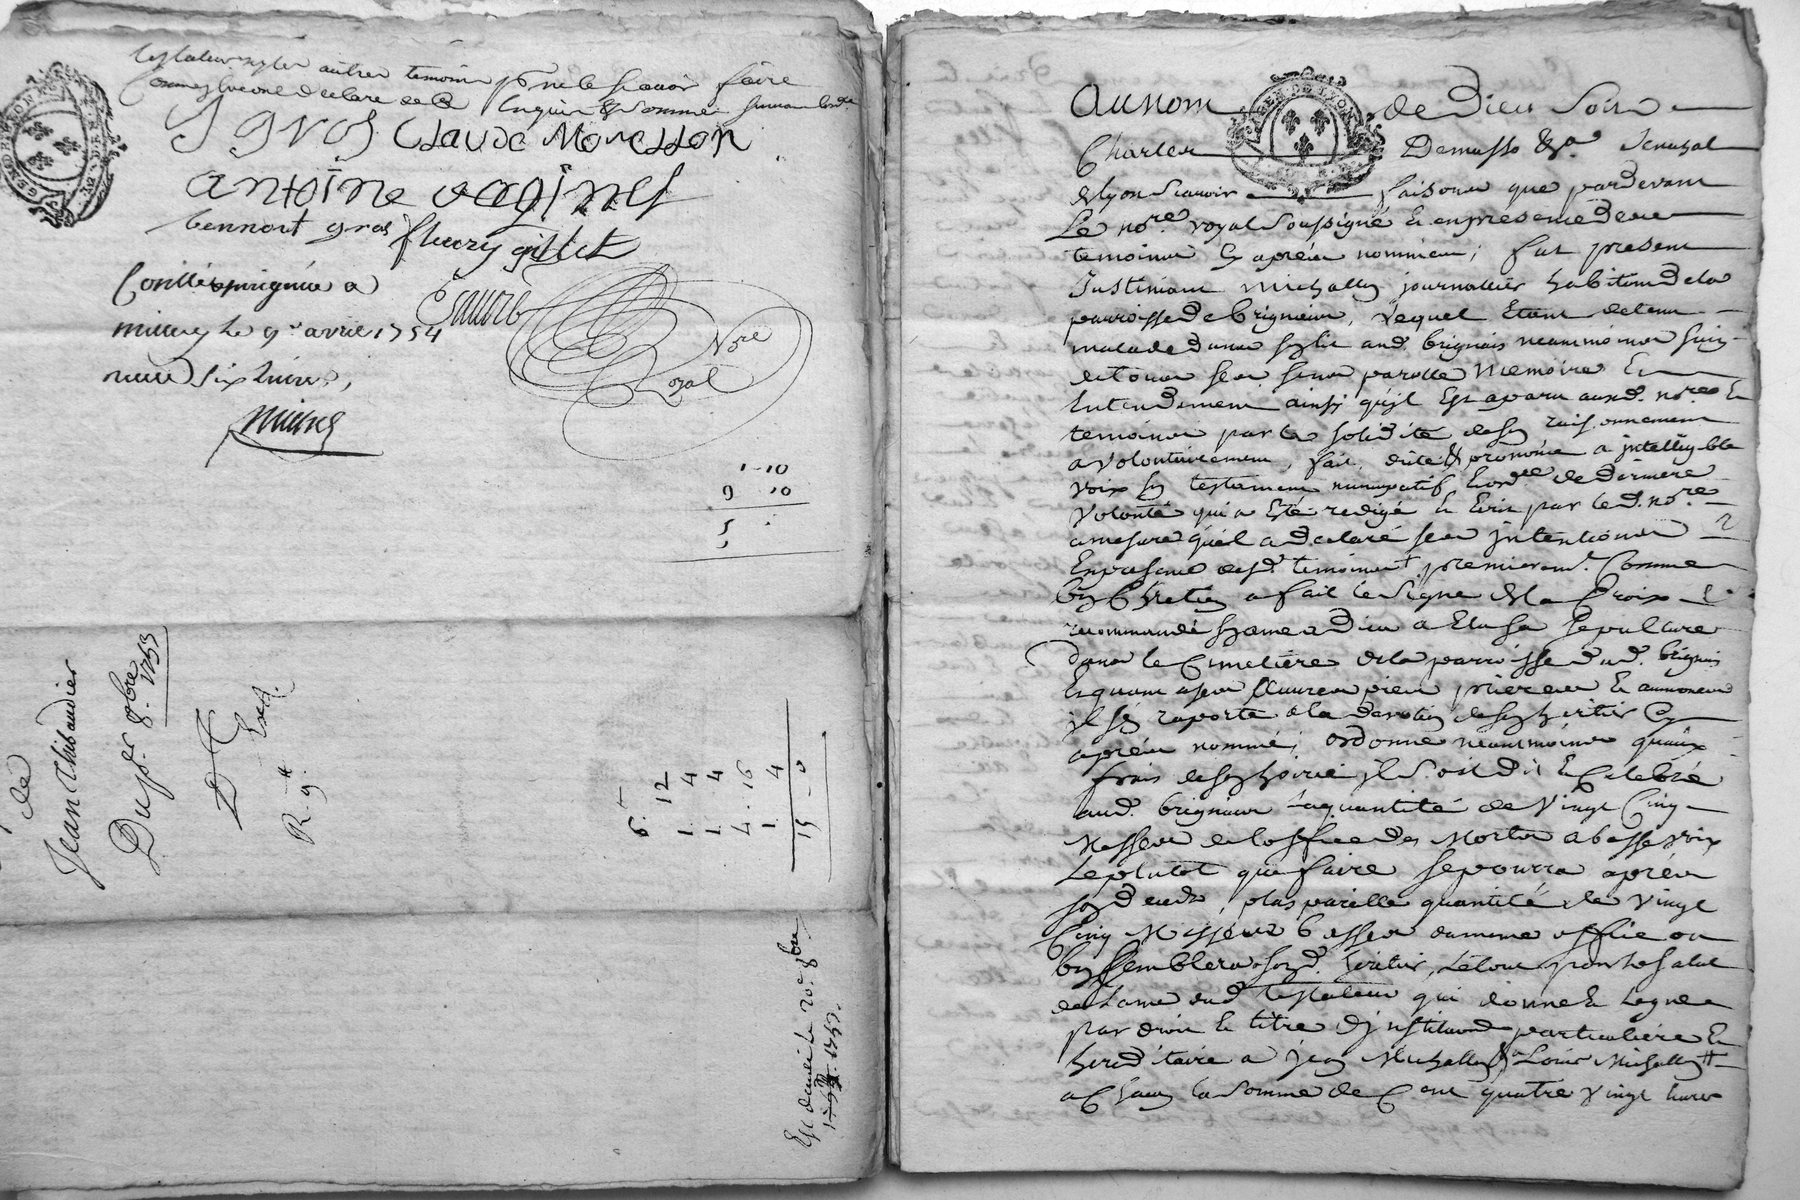 autres temoins pr ne le scavoir faire
declare de ce Enquis & sommé
J gros Claude Moresson
antoine vaginest
bennoit gros fleury gillet
Controllé a
millery le 9e avril 1754
receu six livres,
Nore
Royal
1-10
9 10
5
de
Jean Thibaudier
Du pr 8bre 1753
Ext.
R. 9tt
6.
1. 12
1. 4
1. 4
4. 16
1. 4
15 - 0
Expedié le 20e 8bre
1753.
GEN DE LYON
Au nom de Dieu Soit
Charles Demasso &a. Senechal
de lyon Scavoir faisons que pardevant
Le nore. royal Soussigné & en presence des
temoins cy aprés nommés; fut present
Justinien Michallet journallier habitant de la
parroisse de brignais, Lequel Etant detenu
malade dans son lit aud. brignais neanmoins sain
de tous ses sens parolle Memoire Et
Entendement ainsy qu'jl Est aparu aud. nore &
temoins par la solidité de son raisonnement
a volontairement, fait, dicté & prononcé a jntelligible
voix son testament nuncupatif & ordce de derniere
volonté qui a Eté redigé en Ecrit par led. nore.
amesure qu'il a declaré ses jntentions
En presence desd. temoins premieremt. Comme
bon Chretien a fait le signe de la Croix
recommandé son ame a Dieu a Elu sa sepulture
dans le Cimetiére de la parroisse dud. brignais
Et quant a ses œuvres pies prieres & aumones
jl s'en raporte a la devotion de son heritier Cy
aprés nommé; ordonne neanmoins qu'aux
frais de son hoirie jl soit dit & Celebré
aud. brignais la quantité de Vingt Cinq
Messes de loffice des Morts a basse voix
Le plutot que faire se pourra aprés
son decés, plus pareille quantité de Vingt
Cinq Messes basses du meme office ou
bon semblera a sond. heritier, Le tout pour le salut
de lame dud. testateur qui donne & Legue
par droit & titre d'jnstitution particuliére &
hereditaire a jean Michallet & a Louis Michallet
a Chacun la somme de Cent quatre vingt livres